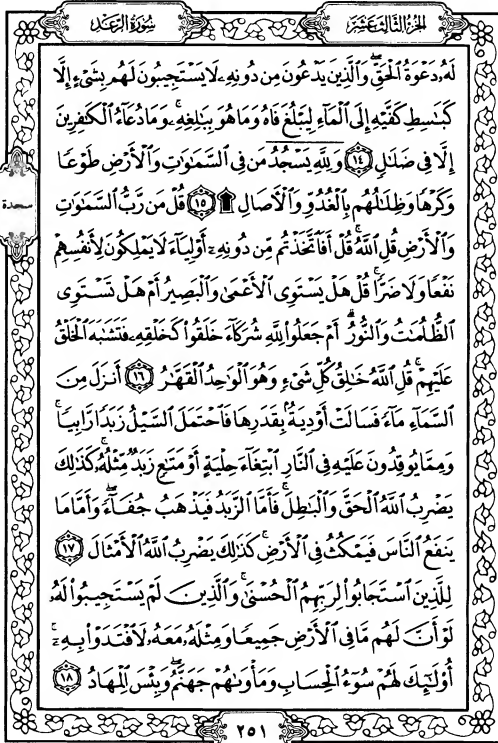 الجزء الثالث عشر
سورة الرعد
لَهُۥ دَعۡوَةُ ٱلۡحَقِّۖ وَٱلَّذِينَ يَدۡعُونَ مِن دُونِهِۦ لَا يَسۡتَجِيبُونَ لَهُم بِشَيۡءٍ إِلَّا
كَبَٰسِطِ كَفَّيۡهِ إِلَى ٱلۡمَآءِ لِيَبۡلُغَ فَاهُ وَمَا هُوَ بِبَٰلِغِهِۦۚ وَمَا دُعَآءُ ٱلۡكَٰفِرِينَ
إِلَّا فِي ضَلَٰلٖ ١٤ وَلِلَّهِۤ يَسۡجُدُۤ مَن فِي ٱلسَّمَٰوَٰتِ وَٱلۡأَرۡضِ طَوۡعٗا
وَكَرۡهٗا وَظِلَٰلُهُم بِٱلۡغُدُوِّ وَٱلۡأٓصَالِ ۩ ١٥ قُلۡ مَن رَّبُّ ٱلسَّمَٰوَٰتِ
وَٱلۡأَرۡضِ قُلِ ٱللَّهُۚ قُلۡ أَفَٱتَّخَذۡتُم مِّن دُونِهِۦٓ أَوۡلِيَآءَ لَا يَمۡلِكُونَ لِأَنفُسِهِمۡ
نَفۡعٗا وَلَا ضَرّٗاۚ قُلۡ هَلۡ يَسۡتَوِي ٱلۡأَعۡمَىٰ وَٱلۡبَصِيرُ أَمۡ هَلۡ تَسۡتَوِي
ٱلظُّلُمَٰتُ وَٱلنُّورُۗ أَمۡ جَعَلُواْ لِلَّهِ شُرَكَآءَ خَلَقُواْ كَخَلۡقِهِۦ فَتَشَٰبَهَ ٱلۡخَلۡقُ
عَلَيۡهِمۡۚ قُلِ ٱللَّهُ خَٰلِقُ كُلِّ شَيۡءٖ وَهُوَ ٱلۡوَٰحِدُ ٱلۡقَهَّٰرُ ١٦ أَنزَلَ مِنَ
ٱلسَّمَآءِ مَآءٗ فَسَالَتۡ أَوۡدِيَةُۢ بِقَدَرِهَا فَٱحۡتَمَلَ ٱلسَّيۡلُ زَبَدٗا رَّابِيٗاۚ
وَمِمَّا يُوقِدُونَ عَلَيۡهِ فِي ٱلنَّارِ ٱبۡتِغَآءَ حِلۡيَةٍ أَوۡ مَتَٰعٖ زَبَدٞ مِّثۡلُهُۥۚ كَذَٰلِكَ
يَضۡرِبُ ٱللَّهُ ٱلۡحَقَّ وَٱلۡبَٰطِلَۚ فَأَمَّا ٱلزَّبَدُ فَيَذۡهَبُ جُفَآءٗۖ وَأَمَّا مَا
يَنفَعُ ٱلنَّاسَ فَيَمۡكُثُ فِي ٱلۡأَرۡضِۚ كَذَٰلِكَ يَضۡرِبُ ٱللَّهُ ٱلۡأَمۡثَالَ ١٧
لِلَّذِينَ ٱسۡتَجَابُواْ لِرَبِّهِمُ ٱلۡحُسۡنَىٰۚ وَٱلَّذِينَ لَمۡ يَسۡتَجِيبُواْ لَهُۥ
لَوۡ أَنَّ لَهُم مَّا فِي ٱلۡأَرۡضِ جَمِيعٗا وَمِثۡلَهُۥ مَعَهُۥ لَٱفۡتَدَوۡاْ بِهِۦٓۚ
أُوْلَٰٓئِكَ لَهُمۡ سُوٓءُ ٱلۡحِسَابِ وَمَأۡوَىٰهُمۡ جَهَنَّمُۖ وَبِئۡسَ ٱلۡمِهَادُ ١٨
سجدة
٢٥١